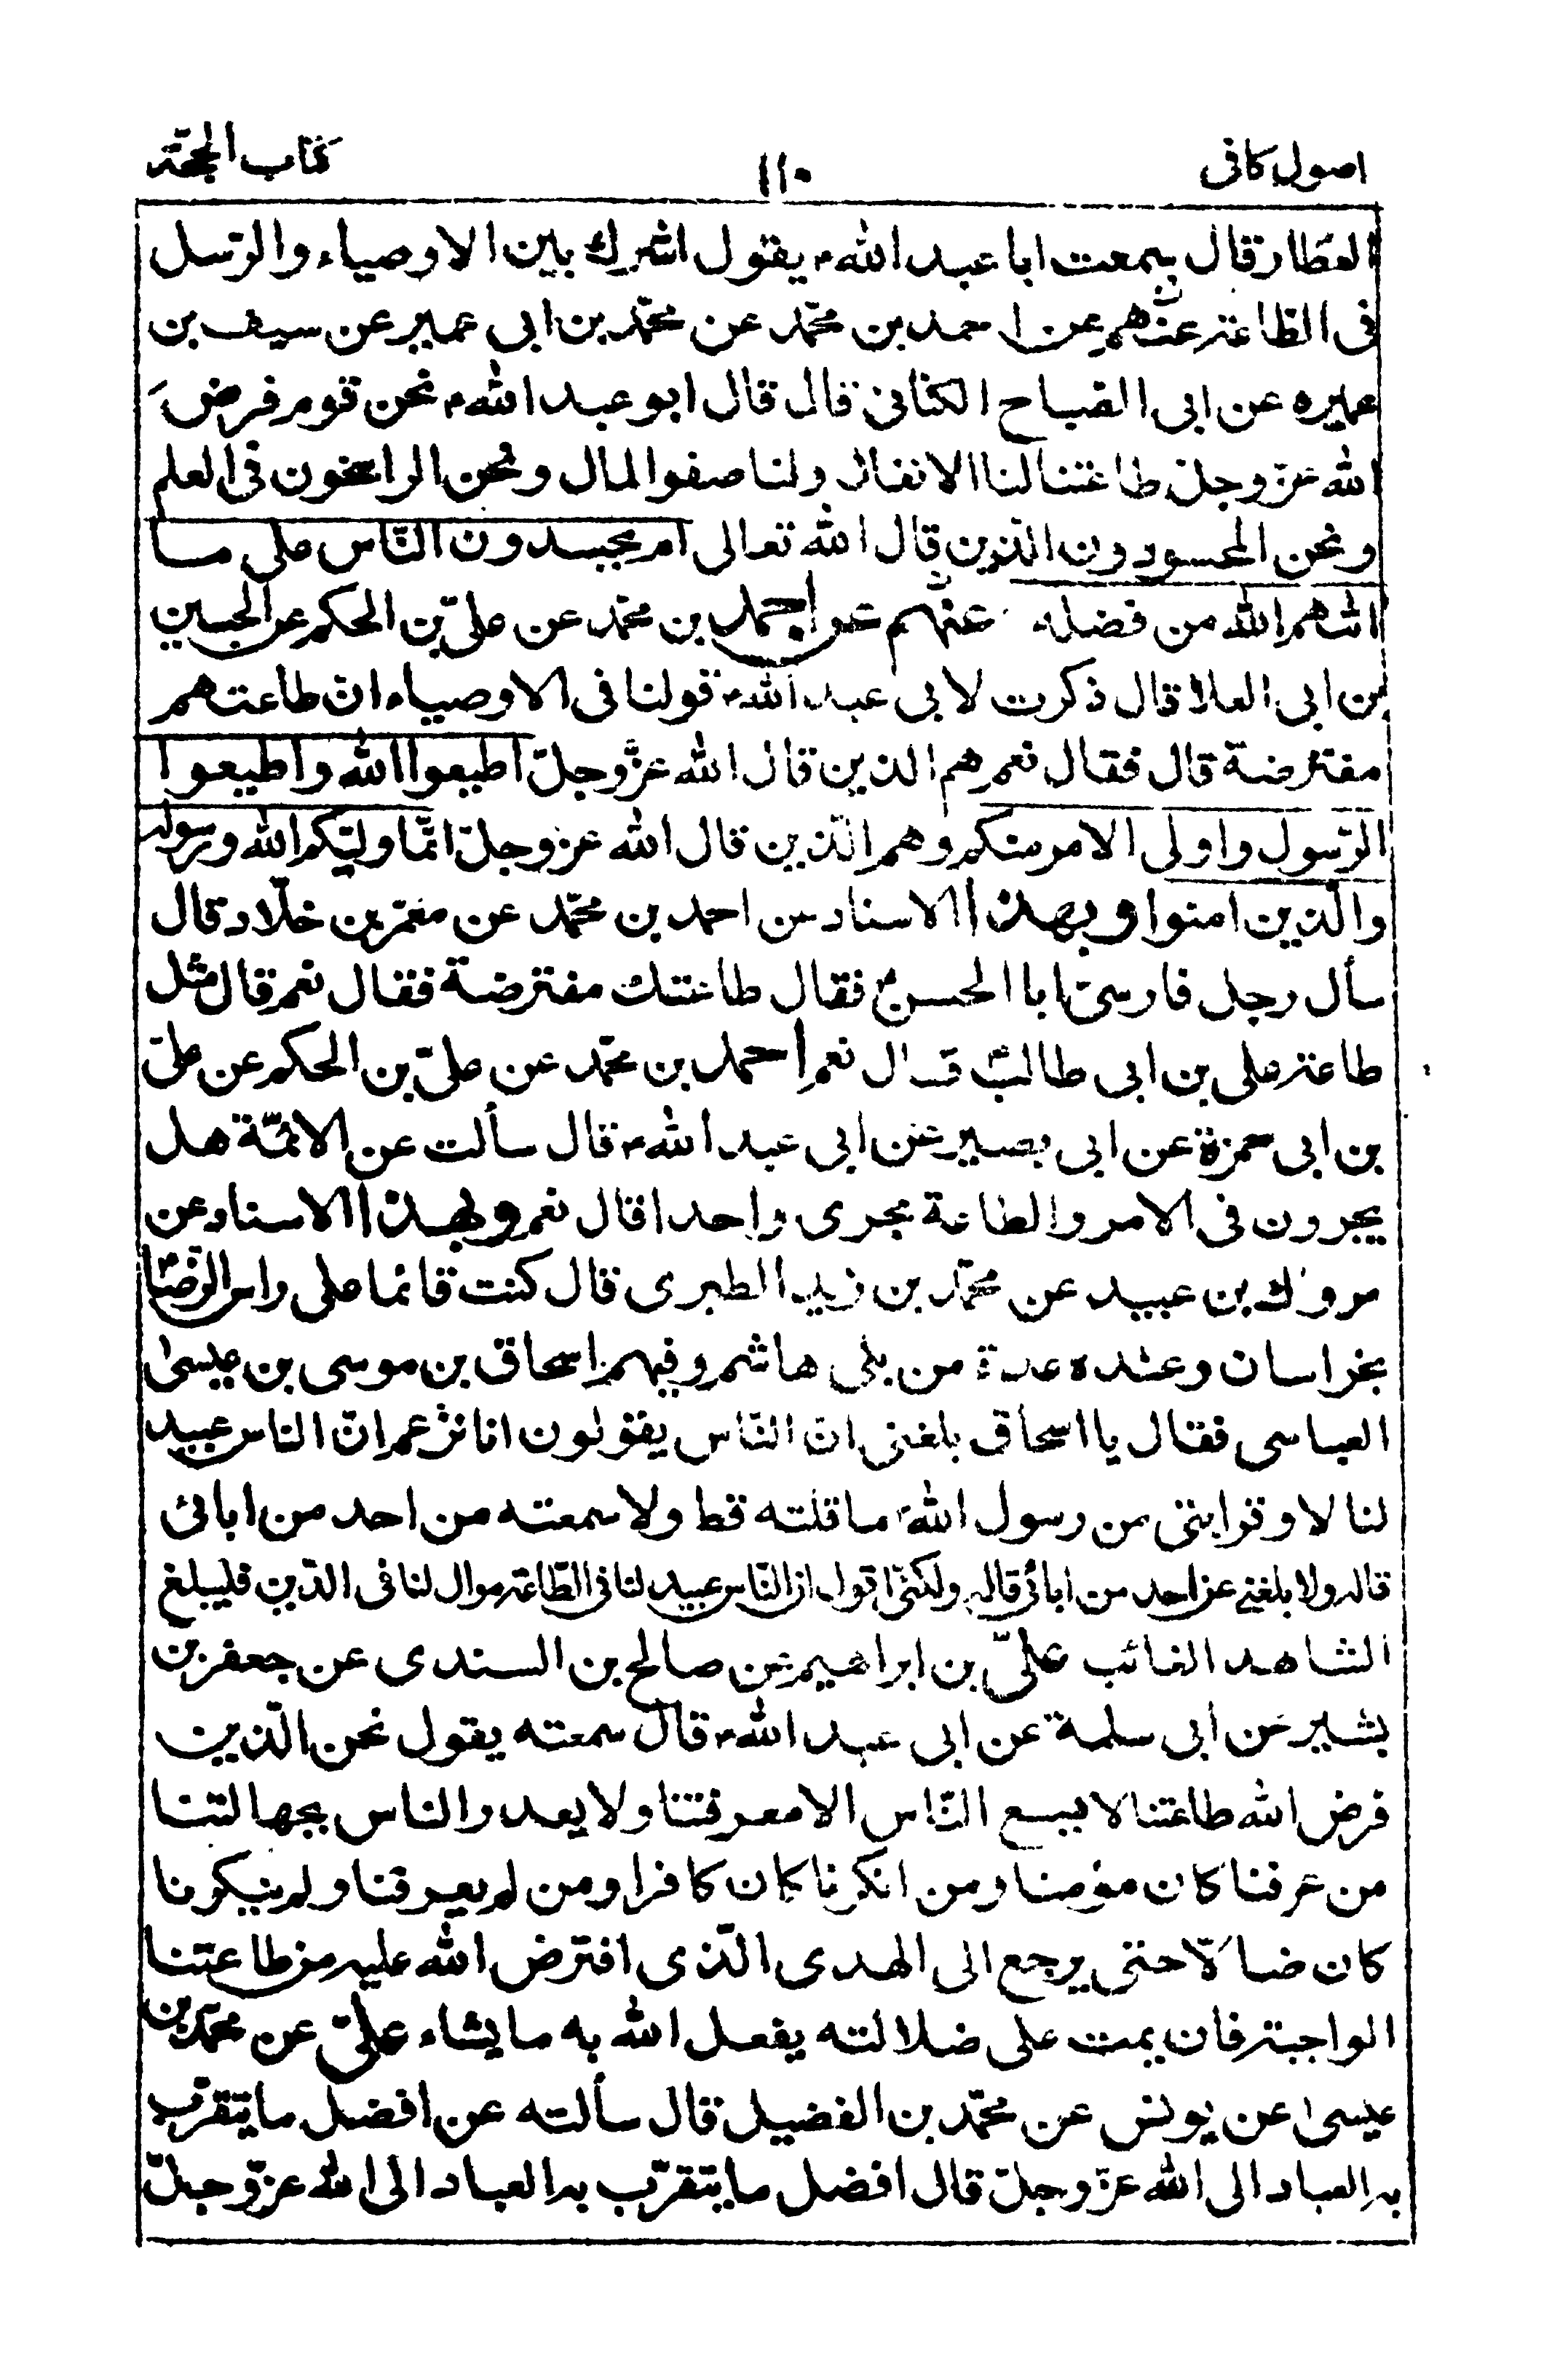 اصول كافى ١١٠ كتاب الحجّة
العطّار قال سمعت ابا عبد الله ع يقول اشرك بين الاوصياء والرّسل
فى الطّاعة عنهم عن احمد بن محمّد عن محمّد بن ابى عمير عن سيف بن
عميره عن ابى الصّباح الكنانى قال قال ابو عبد الله ع نحن قوم فرض
الله عزّ وجلّ طاعتنا لنا الانفال ولنا صفو المال ونحن الراسخون فى العلم
ونحن المحسودون الّذين قال الله تعالى ام يحسدون النّاس على ما
اتٰهم الله من فضله عنهم عن احمد بن محمّد عن علىّ بن الحكم عن الحسين
بن ابى العلا قال ذكرت لابى عبد الله ع قولنا فى الاوصياء انّ طاعتهم
مفترضة قال فقال نعم هم الذين قال الله عزّ وجلّ اطيعوا الله واطيعوا
الرّسول واولى الامر منكم وهم الّذين قال الله عز وجلّ انّما وليّكم الله ورسوله
والّذين امنوا وبهذا الاسناد عن احمد بن محمّد عن معمّر بن خلّاد قال
سأل رجل فارسىّ ابا الحسن ع فقال طاعتك مفترضة فقال نعم قال مثل
طاعة على بن ابى طالب ع قال نعم احمد بن محمّد عن علىّ بن الحكم عن علىّ
بن ابى حمزة عن ابى بصير عن ابى عبد الله ع قال سألت عن الائمّة هل
يجرون فى الامر والطاعة مجرى واحدا قال نعم وبهذا الاسناد عن
مروك بن عبيد عن محمّد بن زيد الطبرى قال كنت قائما على راس الرّضا ع
بخراسان وعنده عدة من بنى هاشم وفيهم اسحاق بن موسى بن عيسىٰ
العباسى فقال يا اسحاق بلغنى انّ النّاس يقولون انا نزعم انّ الناس عبيد
لنا لا وقرابتى من رسول الله ص ما قلته قط ولا سمعته من احد من ابائى
قاله ولا بلغنى عن احد من ابائى قاله ولكنّى اقول انّ النّاس عبيد لنا فى الطّاعة موال لنا فى الدّين فليبلغ
الشاهد الغائب علىّ بن ابراهيم عن صالح بن السندى عن جعفر بن
بشير عن ابى سلمة عن ابى عبد الله ع قال سمعته يقول نحن الّذين
فرض الله طاعتنا لا يسع النّاس الا معرفتنا ولا يعذر الناس بجهالتنا
من عرفنا كان مؤمنا ومن انكرنا كان كافرا ومن لم يعرفنا ولم ينكرنا
كان ضالّا حتى يرجع الى الهدى الّذى افترض الله عليه من طاعتنا
الواجبة فان يمت على ضلالته يفعل الله به ما يشاء علىّ عن محمّد بن
عيسىٰ عن يونس عن محمّد بن الفضيل قال سألته عن افضل ما يتقرّب
به العباد الى الله عزّ وجلّ قال افضل ما يتقرّب به العباد الى الله عزّ وجلّ